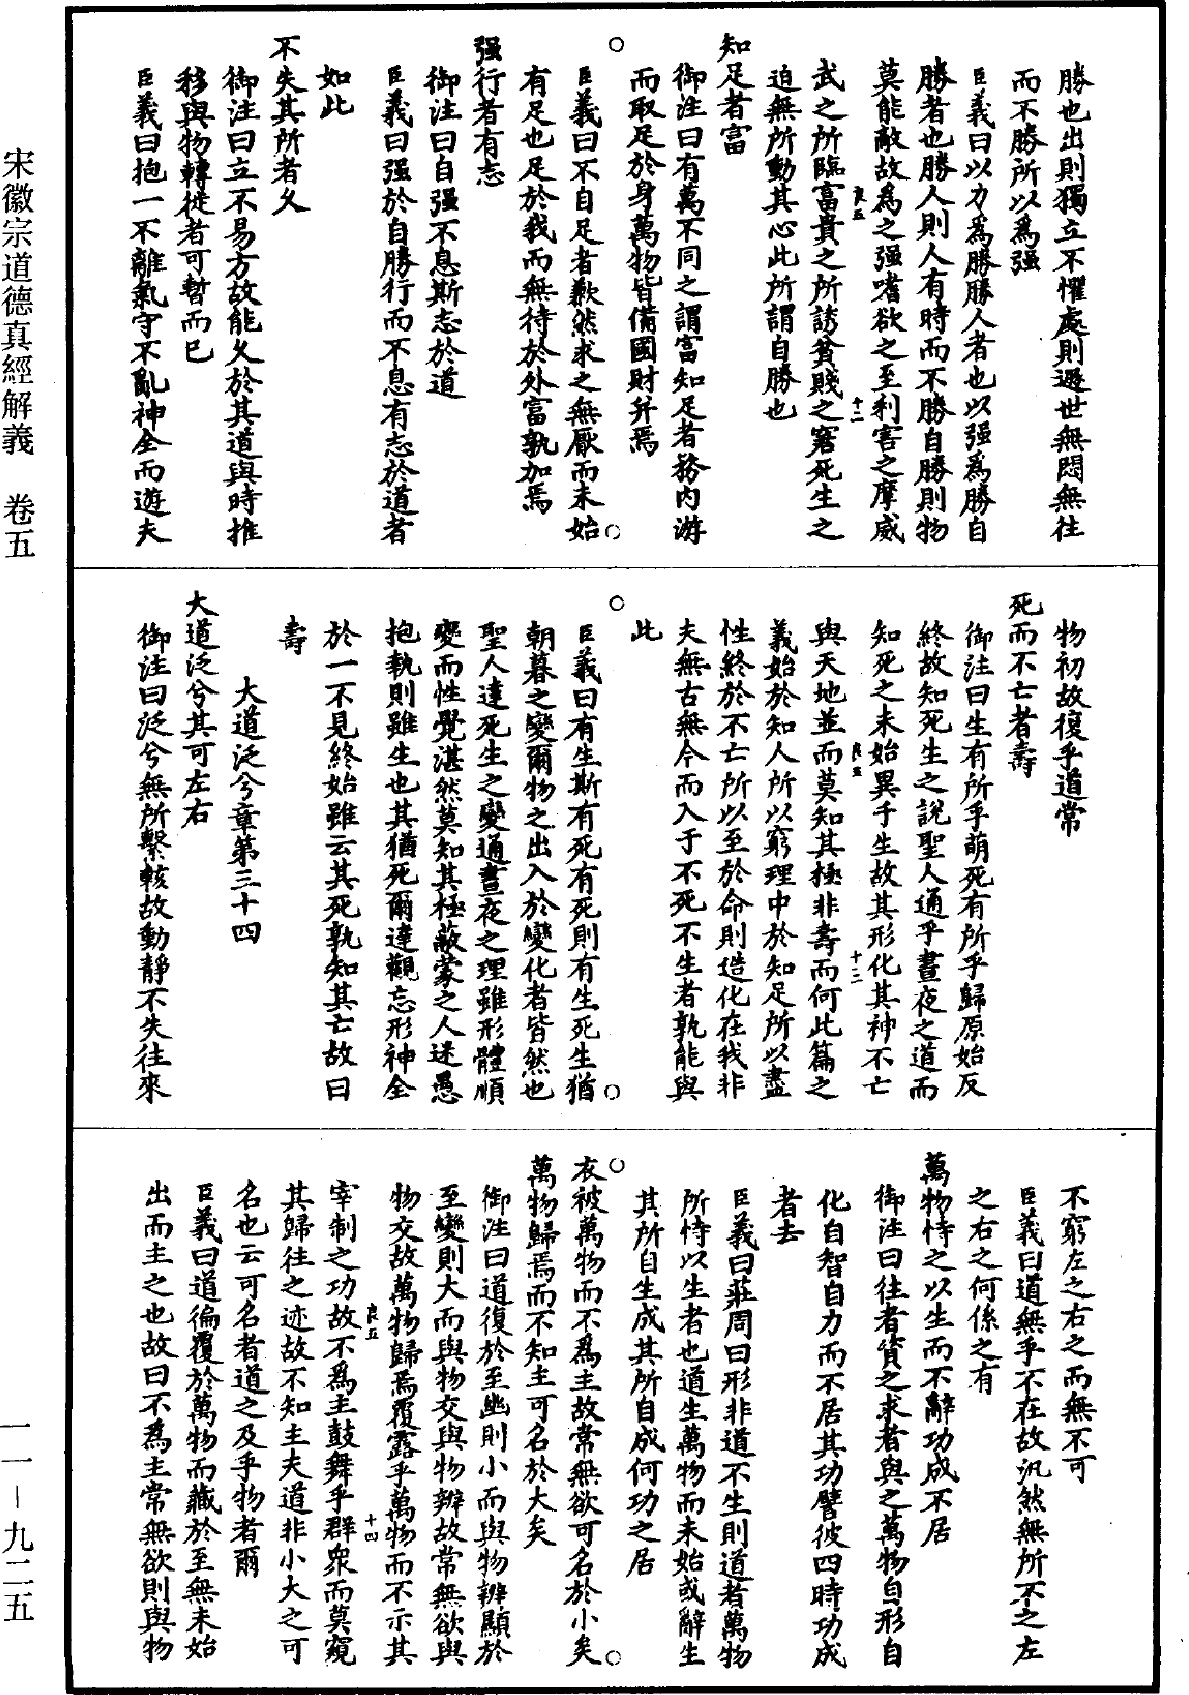 勝也出則獨立不懼處則遯世無悶無往
而不勝所以為强
臣義曰以力為勝勝人者也以强為勝自
勝者也勝人則人有時而不勝自勝則物
莫能敵故為之强嗜欲之至利害之摩威
武之所臨富貴之所誘貧賤之窘死生之
迫無所動其心此所謂自勝也
知足者富
御注曰有萬不同之謂富知足者務内游
而取足於身萬物皆備國財并焉
臣義曰不自足者歉然求之無厭而未始
有足也足於我而無待於外富孰加焉
强行者有志
御注曰自强不息斯志於道
臣義曰强於自勝行而不息有志於道者
如此
不失其所者久
御注曰立不易方故能久於其道與時推
移與物轉徙者可暫而已
臣義曰抱一不離氣守不亂神全而遊夫
物初故復乎道常
死而不亡者壽
御注曰生有所乎萌死有所乎歸原始反
終故知死生之說聖人通乎晝夜之道而
知死之未始異于生故其形化其神不亡
與天地並而莫知其極非壽而何此篇之
義始於知人所以窮理中於知足所以盡
性終於不亡所以至於命則造化在我非
夫無古無今而入于不死不生者孰能與
此
臣義曰有生斯有死有死則有生死生猶
朝暮之變爾物之出入於變化者皆然也
聖人達死生之變通晝夜之理雖形體順
變而性覺湛然莫知其極蔽蒙之人迷愚
抱執則雖生也其猶死爾達觀忘形神全
於一不見終始雖云其死孰知其亡故曰
壽
大道泛兮章第三十四
大道泛兮其可左右
御注曰泛兮無所繫輆故動靜不失往來
不窮左之右之而無不可
臣義曰道無乎不在故汎然無所不之左
之右之何係之有
萬物恃之以生而不辭功成不居
御注曰往者資之求者與之萬物自形自
化自智自力而不居其功譬彼四時功成
者去
臣義曰莊周曰形非道不生則道者萬物
所恃以生者也道生萬物而未始或辭生
其所自生成其所自成何功之居
衣被萬物而不為主故常無欲可名於小矣
萬物歸焉而不知主可名於大矣
御注曰道復於至幽則小而與物辨顯於
至變則大而與物交與物辨故常無欲與
物交故萬物歸焉覆露乎萬物而不示其
宰制之功故不為主鼓舞乎群衆而莫窺
其歸往之迹故不知主夫道非小大之可
名也云可名者道之及乎物者爾
臣義曰道徧覆於萬物而藏於至無未始
出而主之也故曰不為主常無欲則與物
良五
十二
良五
十三
良五
十四
宋徽宗道德真經解義　卷五
一一－九二五